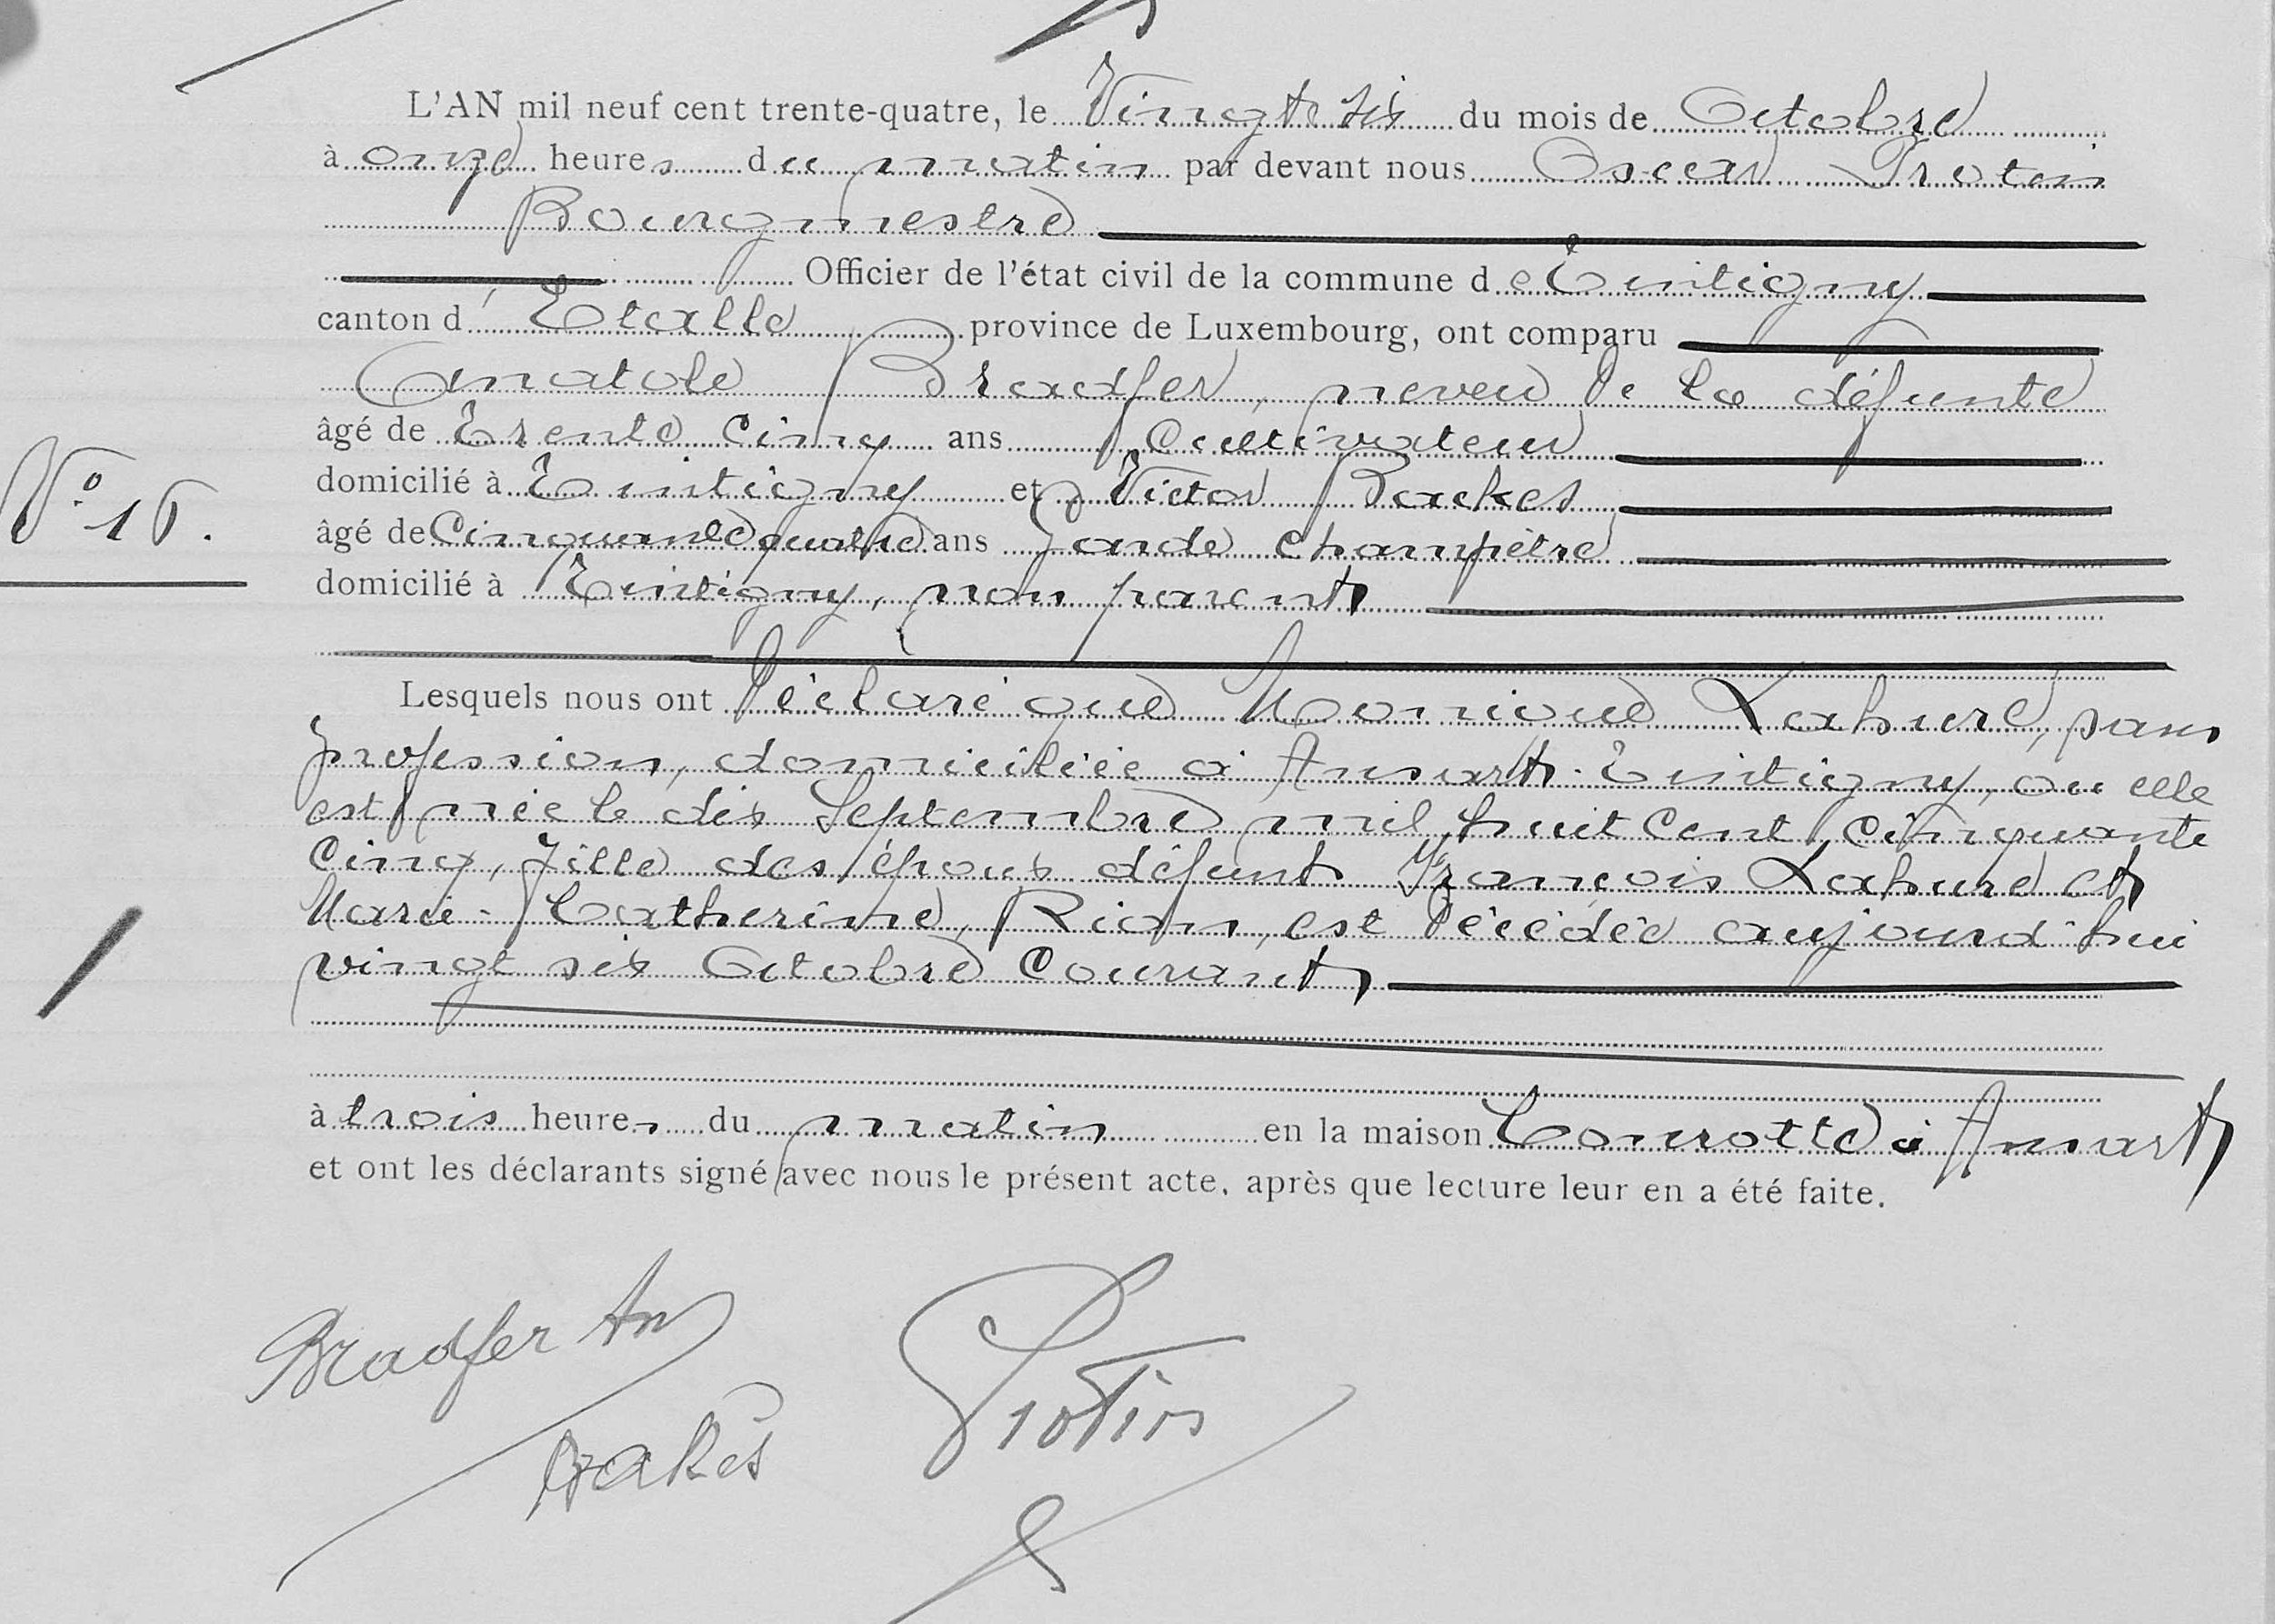 L'AN mil neuf cent trente-quatre, le Vingt six du mois de Octobre
à onze heures du matin par devant nous Oscar Protin
Bourgmestre
Officier de l'état civil de la commune de Tintigny
canton d'Etalle province de Luxembourg, ont comparu
Anatole Bradfer, neveu de la défunte
âgé de Trente cinq ans Cultivateur
domicilié à Tintigny et Victor Backes
âgé de Cinquante quatre ans Garde champêtre
N° 16.
domicilié à Tintigny, non parent
Lesquels nous ont déclaré que Monique Lahure, sans
profession, domiciliée à Ansart-Tintigny, ou elle
est née le dix Septembre mil huit cent cinquante
cinq, fille des époux défunt François Lahure et
Marie-Catherine, Rion, est décédée aujourd'hui
vingt six Octobre courant,
à trois heures du matin en la maison Conrotte à Ansart
et ont les déclarants signé avec nous le présent acte, après que lecture leur en a été faite.
Bradfer An
Bakès
Protin